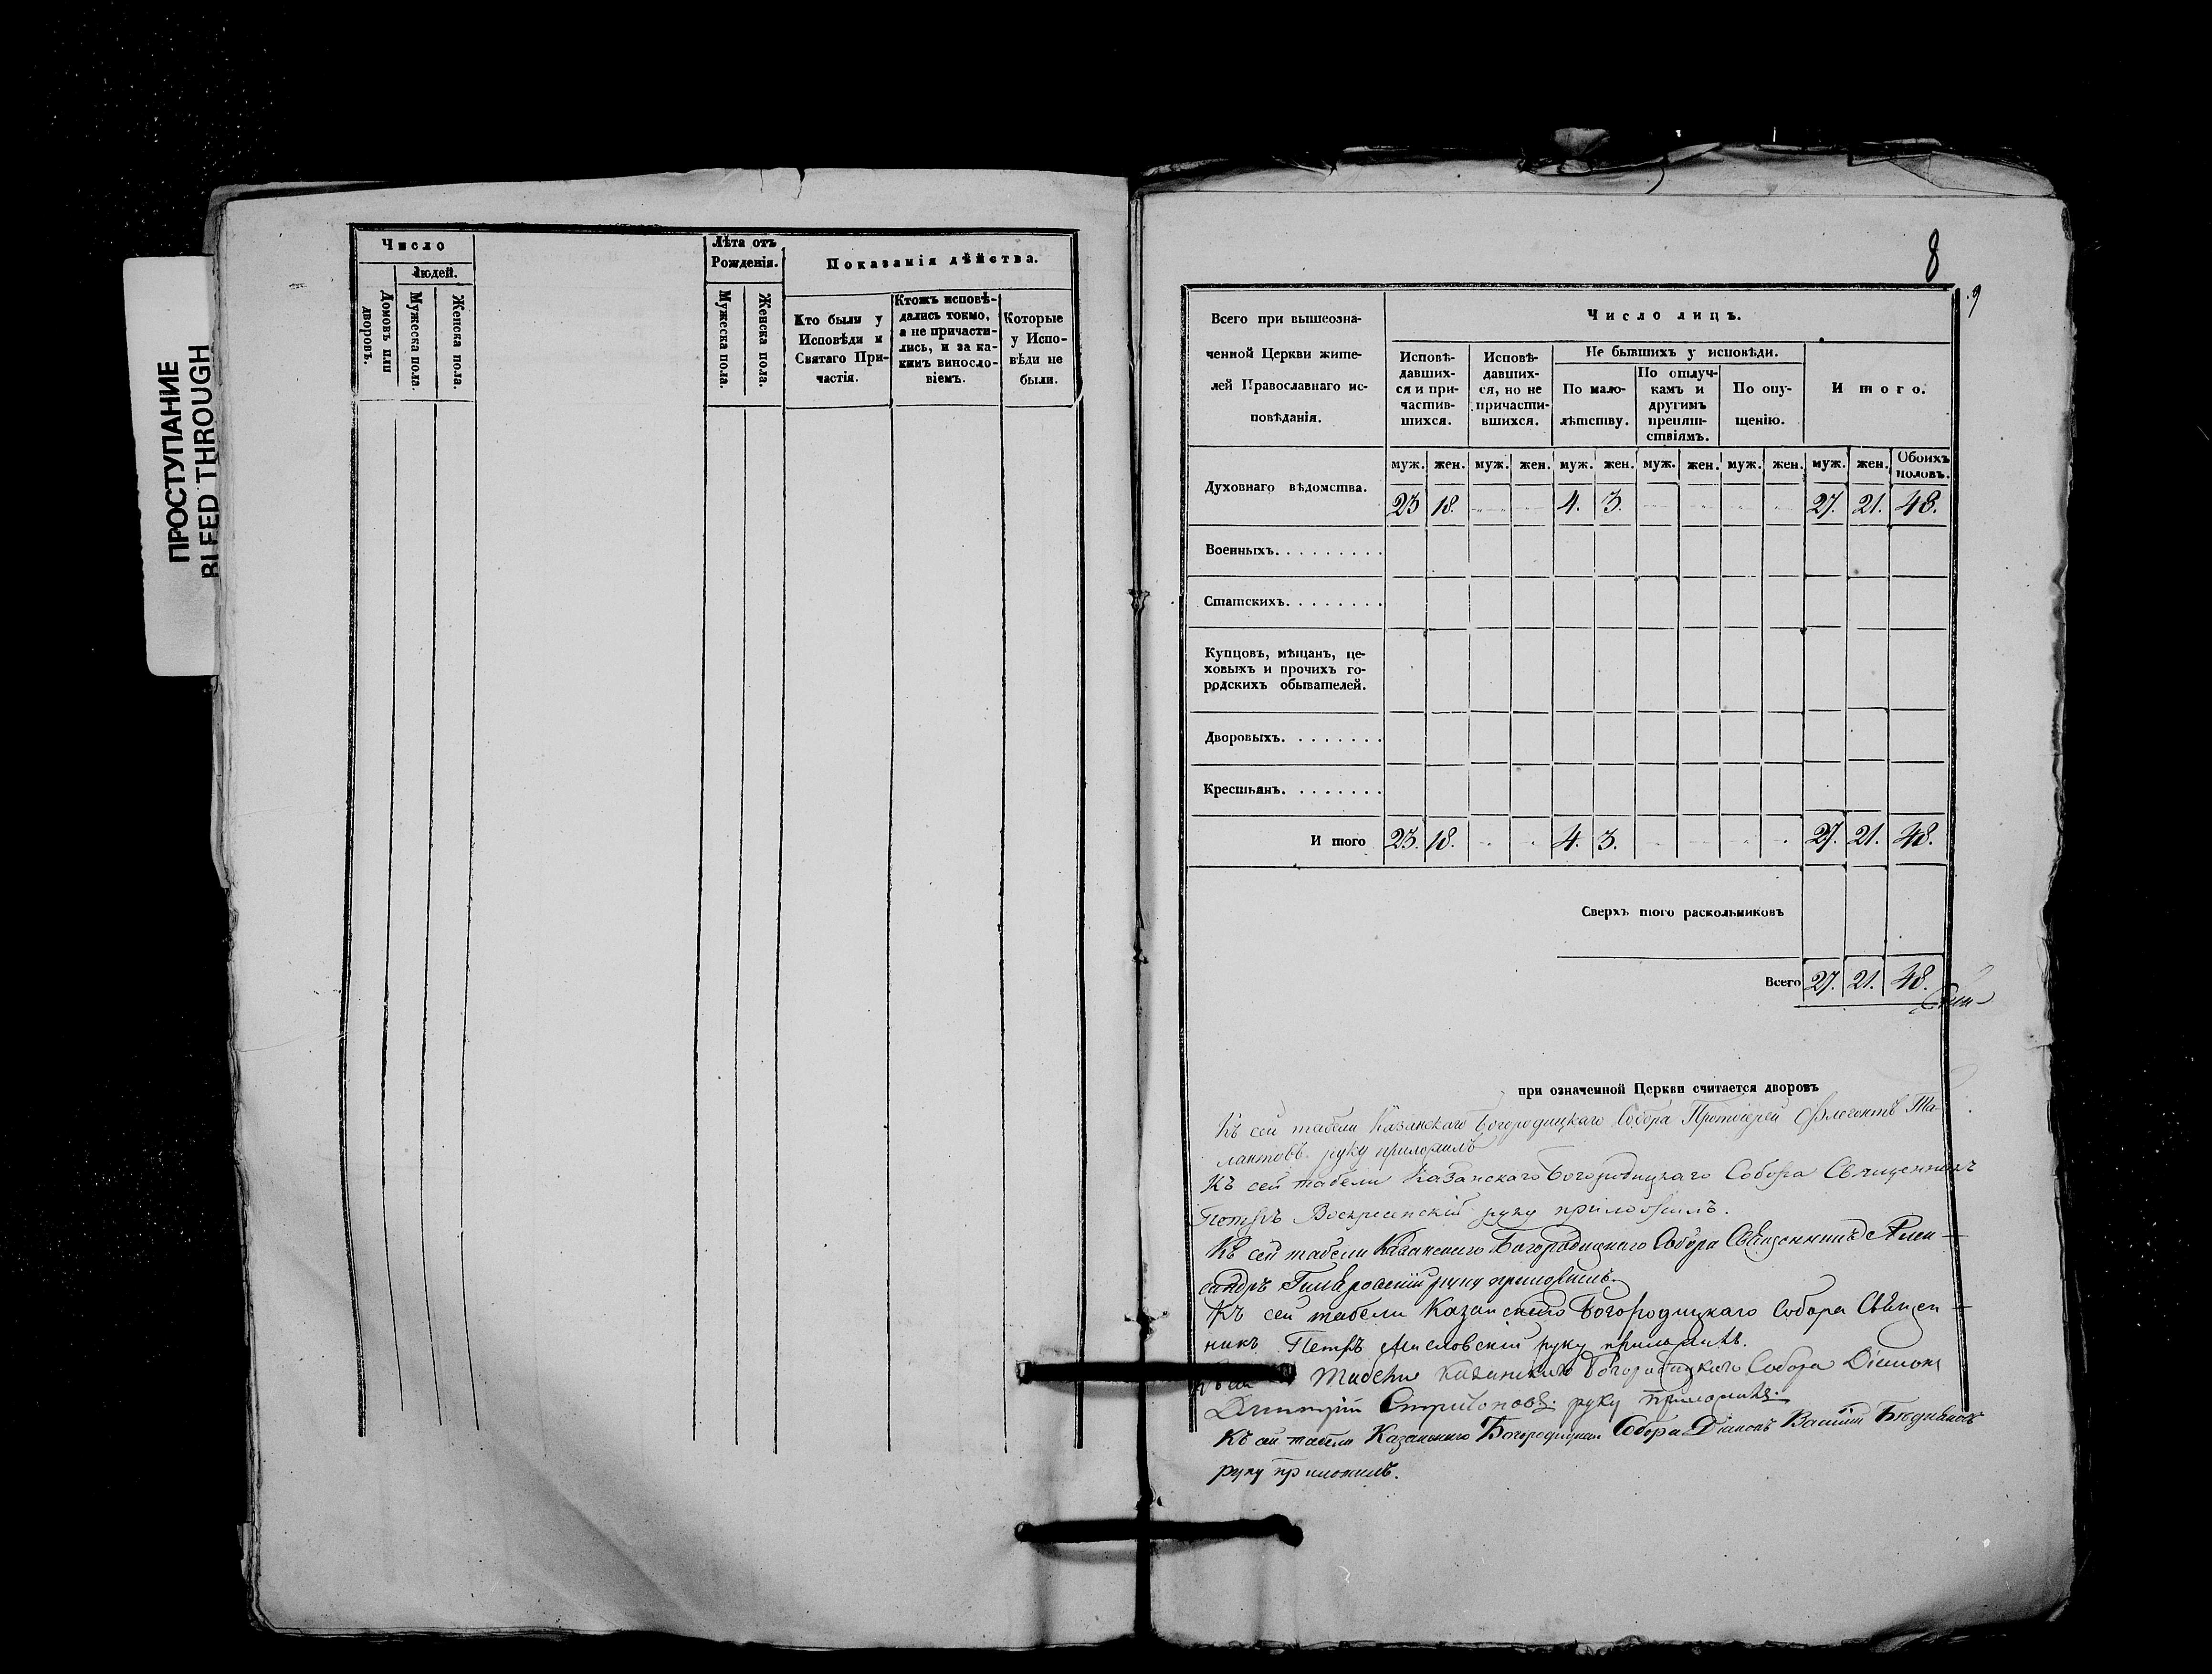 ПРОСТУПАНИЕ
BLEED THROUGH
Число
Людей.
Домовъ или дворовъ.
Мужеска пола.
Женска пола.
Лѣта отъ
Рожденія.
Мужеска пола.
Женска пола.
Показанія дѣйства.
Кто были у
Исповѣди и
Святаго При-
частія.
Ктожъ исповѣ-
дались токмо,
а не причасти-
лись, и за ка-
кимъ винословіемъ.
Которые
у Испо-
вѣди не
были.
8
9
Всего при вышеозна-
ченной Церкви жите-
лей Православнаго ис-
повѣданія.
Число лицъ.
Исповѣ-
давших-
ся и при-
частив-
шихся.
Исповѣ-
давших-
ся, но не
причасти-
вшихся.
Не бывшихъ у исповѣди.
По мало-
лѣтству.
По отлуч-
камъ и
другимъ
препят-
ствіямъ.
По опу-
щенію.
Итого.
муж. жен. муж. жен. муж. жен. муж. жен. муж. жен. муж. жен. Обоихъ половъ.
Духовнаго вѣдомства. 23 18. 4. 3. 27. 21. 48.
Военныхъ.
Статскихъ.
Купцовъ, мѣщанъ, це-
ховыхъ и прочихъ го-
родскихъ обывателей.
Дворовыхъ.
Крестьянъ.
И того 23. 18. 4. 3. 27. 21. 48.
Сверхъ того раскольниковъ
Всего 27. 21. 48.
при означенной Церкви считается дворовъ
Къ сей табели Казанскаго Богородицкаго Собора Протоіерей Флегонтъ Та-
лантовъ руку приложилъ
Къ сей табели Казанскаго Богородицкаго Собора Священникъ
Петръ Воскресенскій руку приложилъ.
Къ сей табели Казанскаго Богородицкаго Собора Священникъ Алек-
сандръ руку приложилъ.
Къ сей табели Казанскаго Богородицкаго Собора Священ-
никъ Петръ Масловскій руку приложилъ.
Къ сей табели Казанскаго Богородицкаго Собора Діаконъ
Димитрій руку приложилъ.
Къ сей табели Казанскаго Богородицкаго Собора Діаконъ Василій
руку приложилъ.